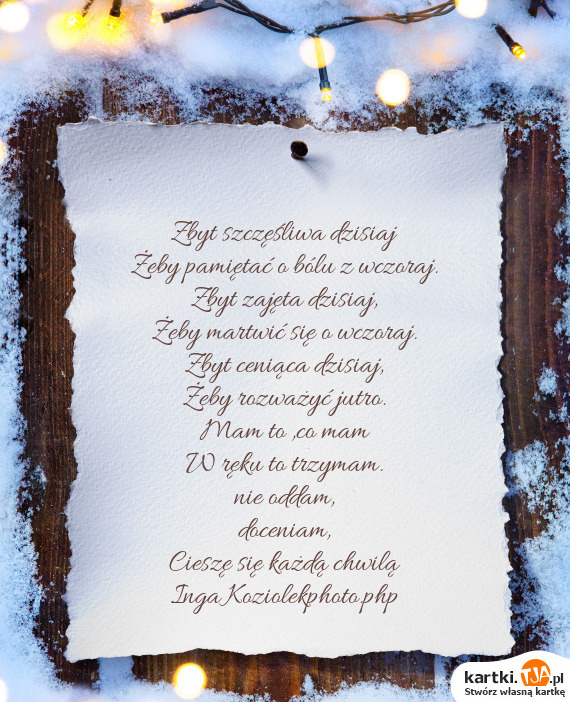 Zbyt szczęśliwa dzisiaj
Żeby pamiętać o bólu z wczoraj.
Zbyt zajęta dzisiaj,
Żeby martwić się o wczoraj.
Zbyt ceniąca dzisiaj,
Żeby rozważyć jutro.
Mam to ,co mam
W ręku to trzymam.
nie oddam,
doceniam,
Cieszę się każdą chwilą
Inga Koziolekphoto.php
kartki.TJA.pl
Stwórz własną kartkę